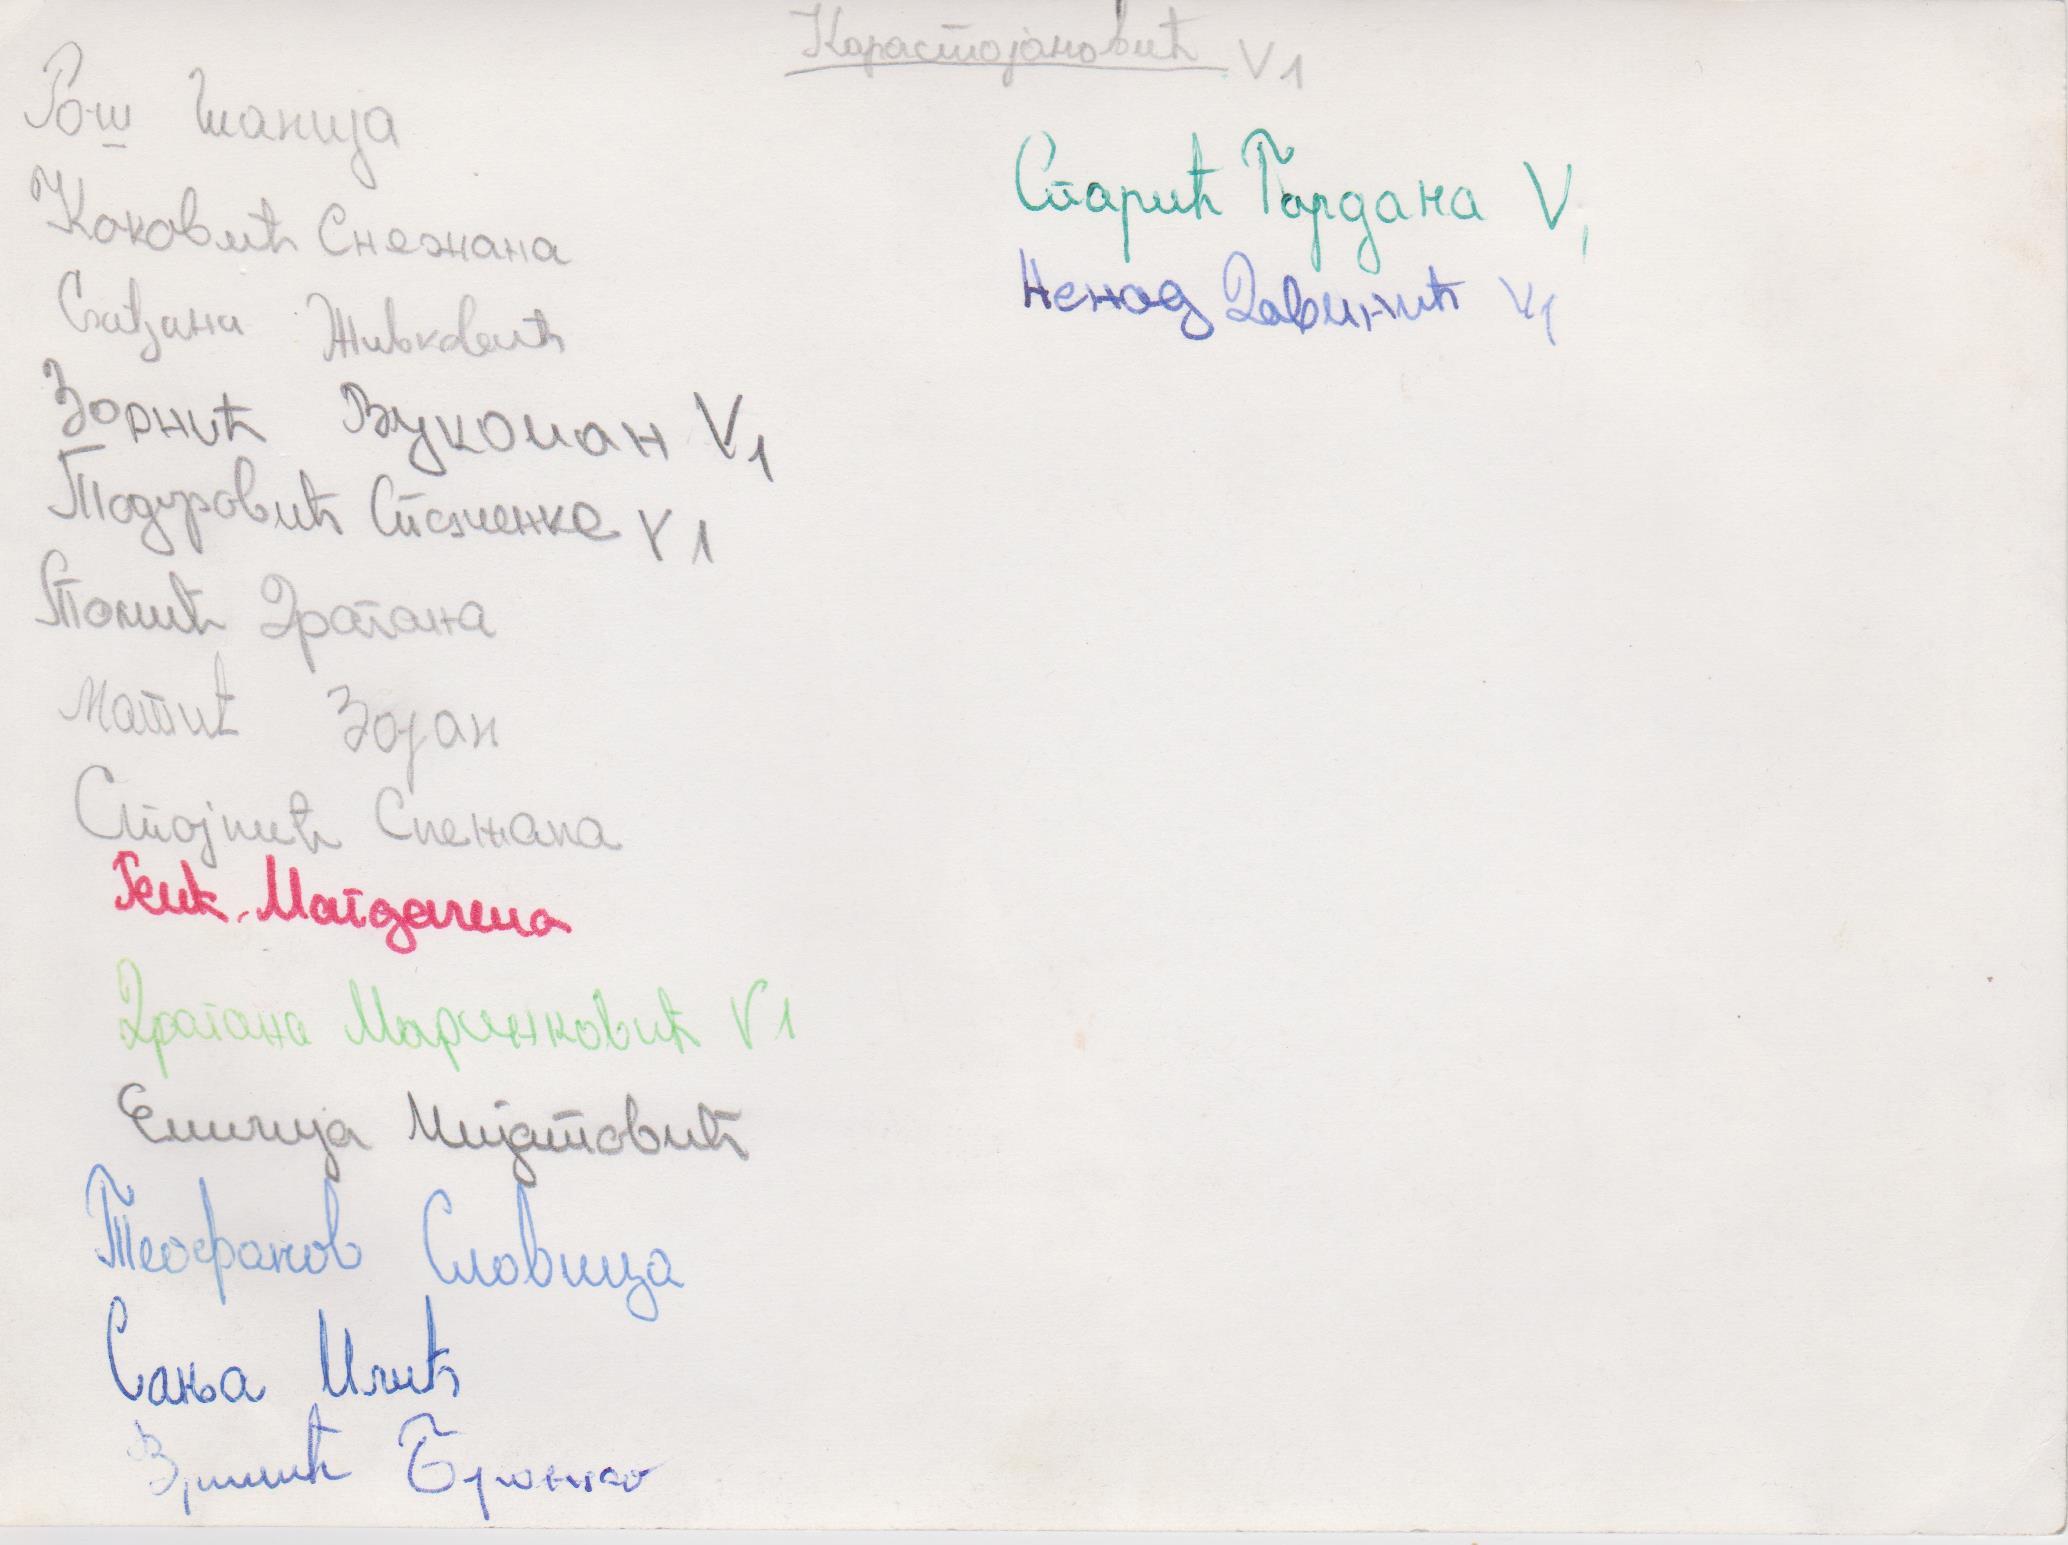 Карастојановић V1
Рош Танија
Коковић Снежана
Слађана Живковић
Зорнић Вукоман V1
Тодуровић Стаменка V1
Томић Драгана
Матић Зоран
Стојнић Снежана
Магдалена
Драгана Маринковић V1
Емилија Мијатовић
Теофанов Славица
Сања Илић
Бранко
Старић Гордана V1
Ненад Давинић V1